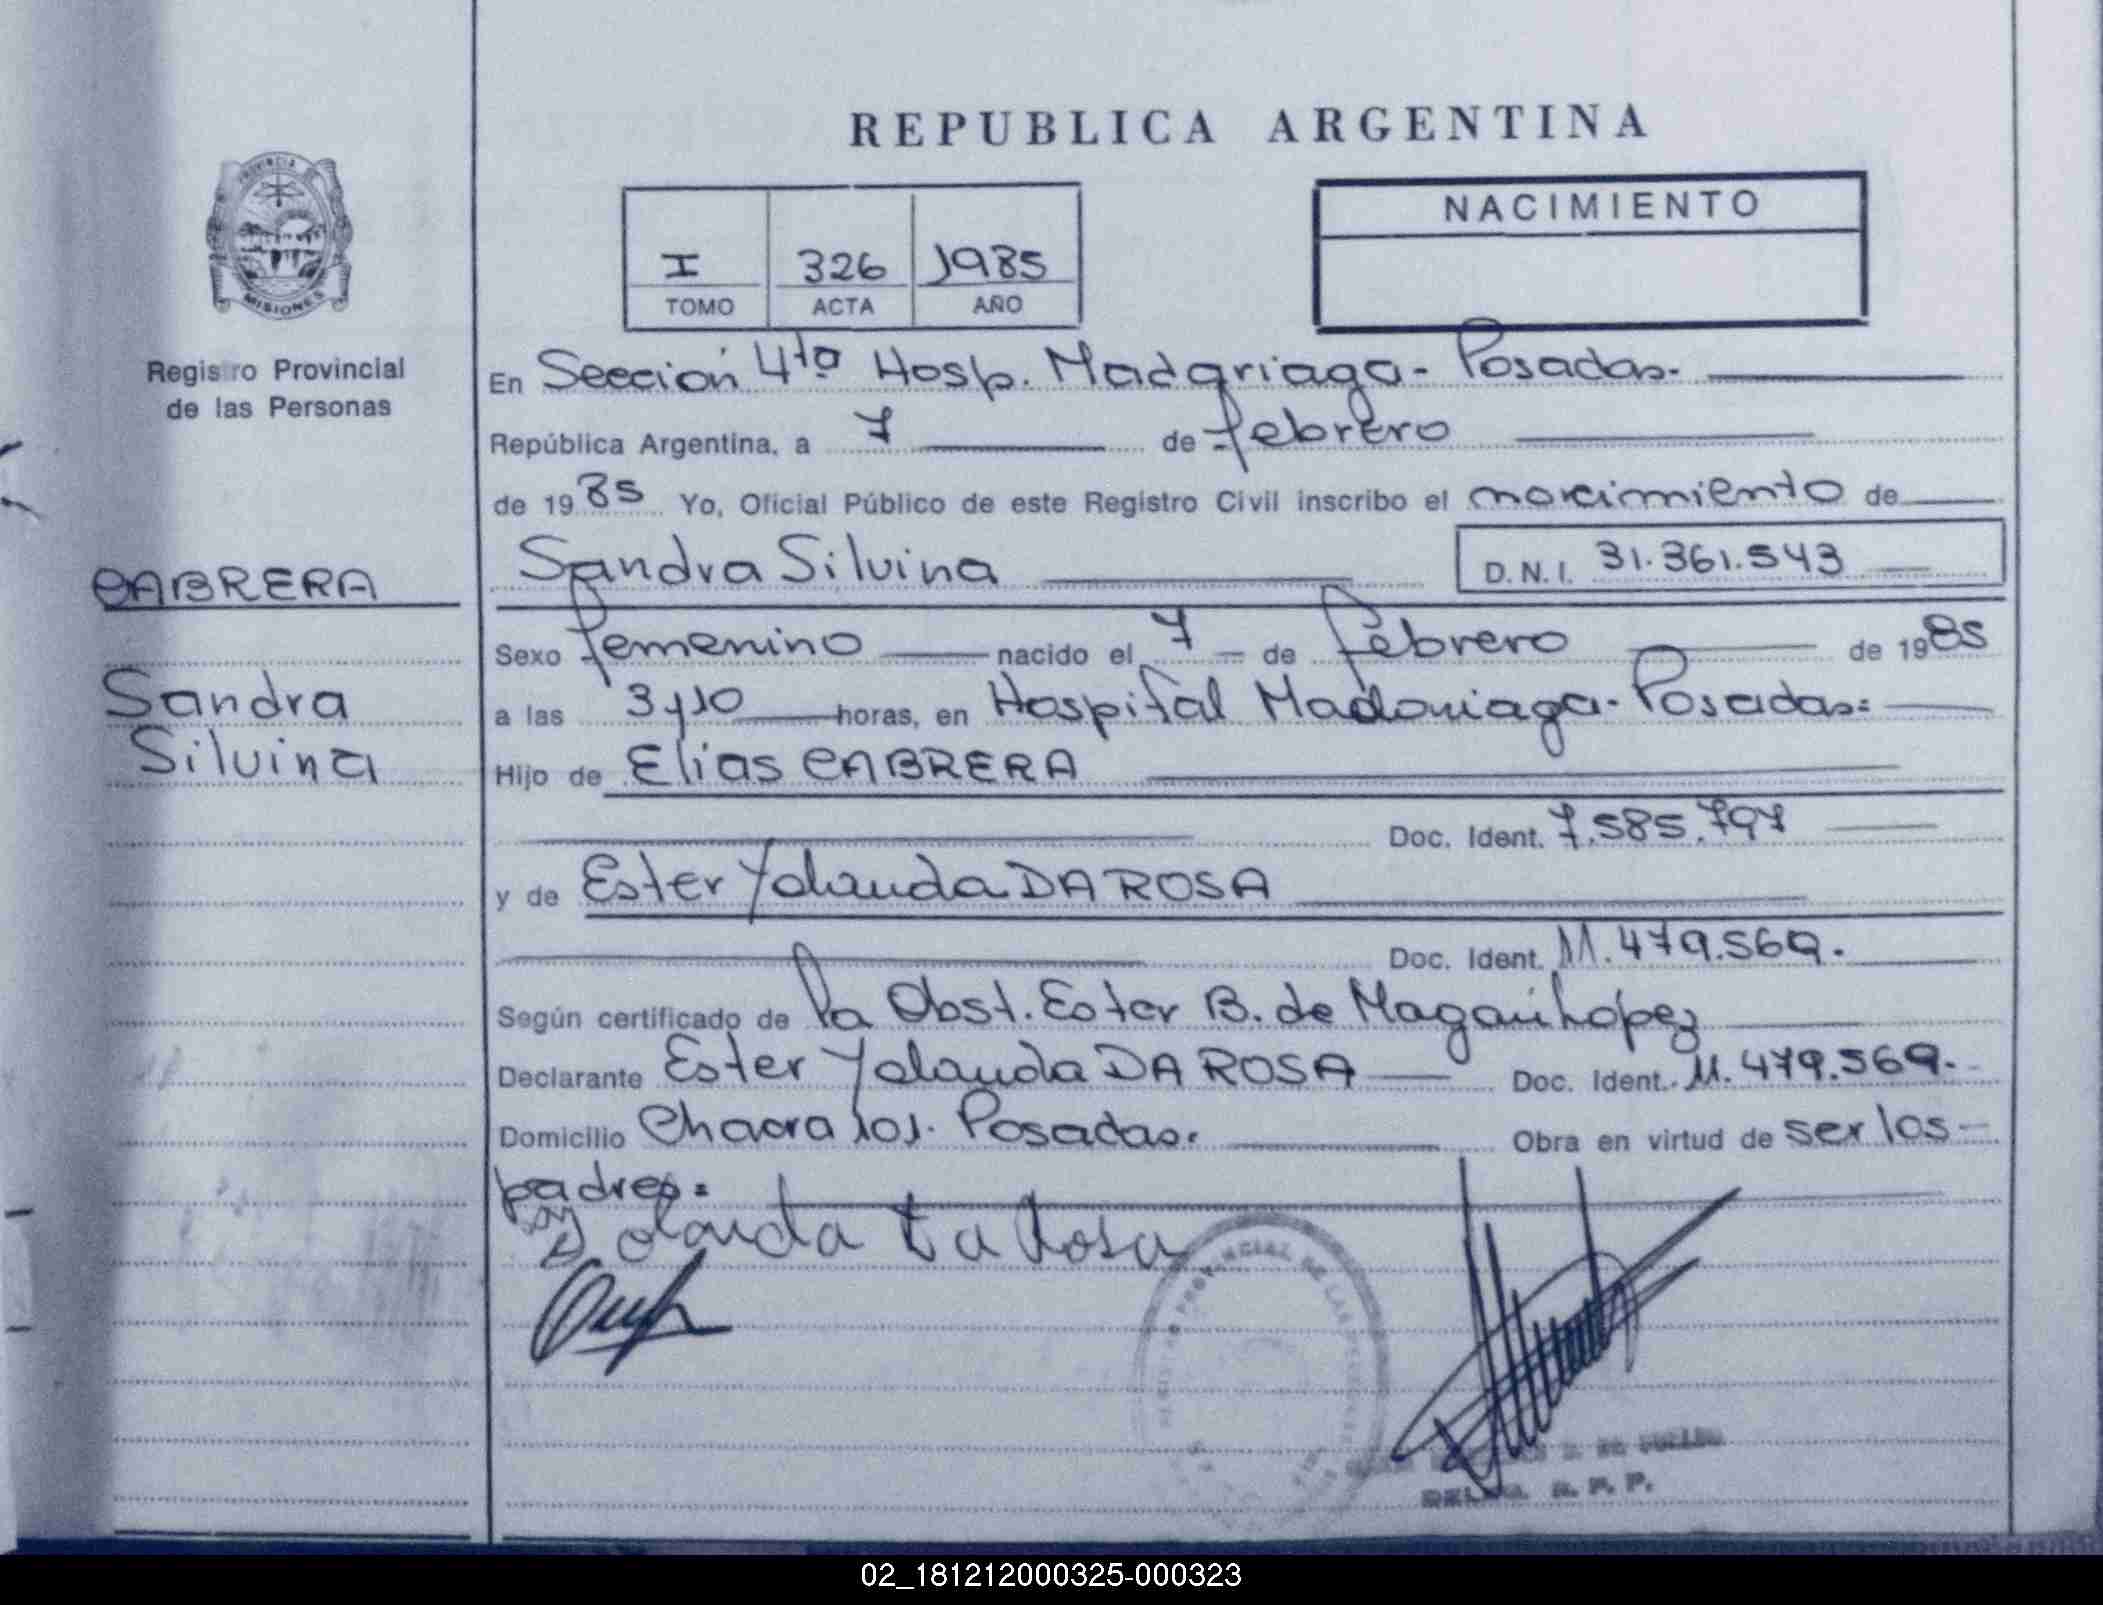 REPUBLICA ARGENTINA
PROVINCIA
MISIONES
Registro Provincial
de las Personas
I 326 1985
TOMO ACTA AÑO
NACIMIENTO
En Sección 4ta Hosp. Madariaga- Posadas.
República Argentina, a 7 de febrero
de 1985 Yo, Oficial Público de este Registro Civil inscribo el nacimiento de
CABRERA
Sandra
Silvina
Sandra Silvina D.N.I. 31.361.543
Sexo femenino nacido el 7 de febrero de 1985
a las 3 y 10 horas, en Hospital Madariaga- Posadas=
Hijo de Elias CABRERA
Doc. Ident. 7.585.797
y de Ester Yolanda DA ROSA
Doc. Ident. 11.479.569.
Según certificado de la Obst. Ester B. de
Declarante Ester Yolanda DA ROSA Doc. Ident. 11.479.569.
Domicilio Chacra 101. Posadas. Obra en virtud de ser los
padres=
Yolanda Da Rosa
PROVINCIAL DE LAS
R. P. P.
02_181212000325-000323